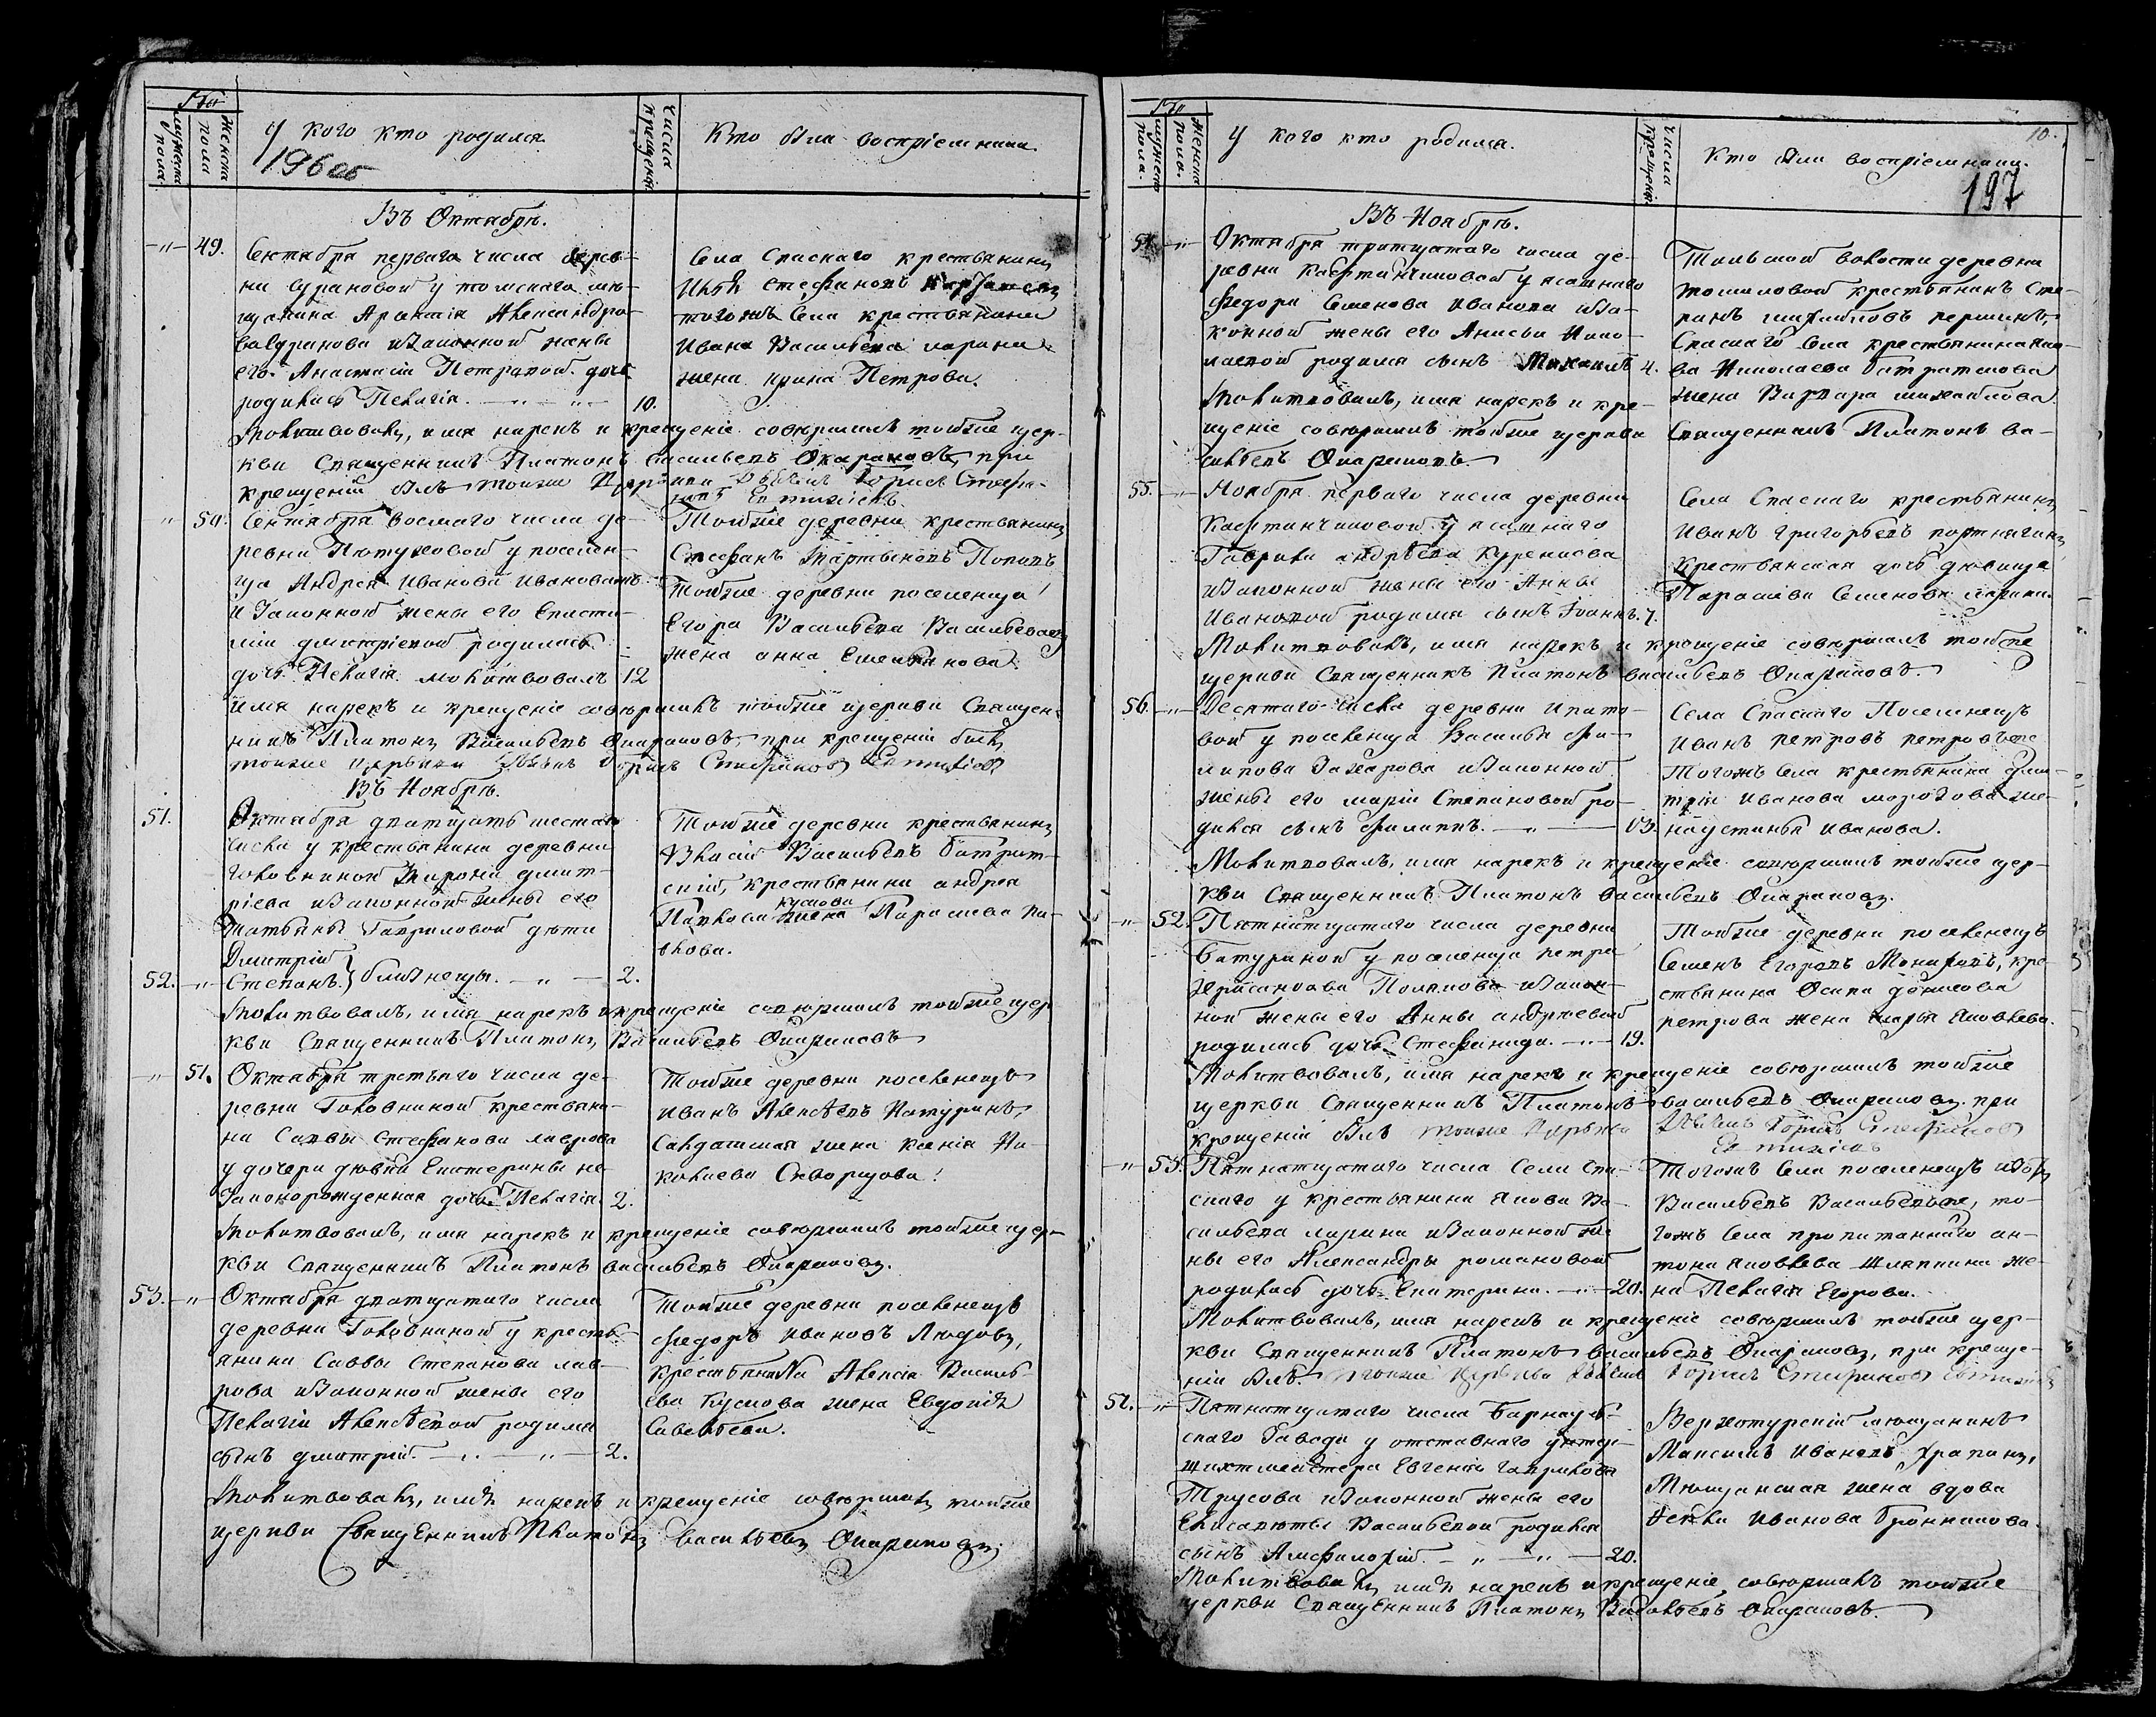 №
мужеска пола
женска пола
У кого кто родился.
196 об
Числа крещенія
Кто был воспріемники.
Въ Октябрѣ.
49. Сентября перваго числа дерев-
ни Сурановой у томскаго мѣ-
щанина Арентія Александро-
ва Суранова и законной жены
его Анастасіи Петровой дочь
родилась Пелагія. 10.
Села Спаскаго крестьянинъ
Илья Стефановъ
тогожъ села крестьянина
Ивана Васильева Ларина
жена Ирина Петрова.
Молитвовалъ, имя нарекъ и крещеніе совершилъ тойже цер-
кви Священникъ Платонъ Васильевъ Опараковъ, при
крещеніи былъ тойже Церкви Дьячекъ Борисъ Стефа-
новъ
50. Сентября восмаго числа де-
ревни Петуховой у поселен-
ца Андрея Иванова Иванова
и законной жены его Еписти-
міи Дмитріевой родилась
дочь Пелагія. Молитвовалъ 12
Тойже деревни крестьянинъ
Стефанъ Мартыновъ Поповъ
Тойже деревни поселенца
Егора Васильева Васильева
жена Анна Емельянова.
имя нарекъ и крещеніе совершилъ тойже церкви Священ-
никъ Платонъ Васильевъ Опараковъ, при крещеніи былъ
тойже Церкви Дьячекъ Борисъ Стефановъ
Въ Ноябрѣ.
51. Октября дватцать шестаго
числа у крестьянина деревни
Головниной Мирона Дмит-
ріева и законной жены его
Татьяны Гавриловой дѣти
Дмитрій
52. Степанъ } близнецы. 2.
Тойже деревни крестьянинъ
Власій Васильевъ
крестьянина Андрея
Павлова Куслова жена Парасева Па-
влова.
Молитвовалъ, имя нарекъ и крещеніе совершилъ тойже цер-
кви Священникъ Платонъ Васильевъ Опараковъ
51. Октября третьяго числа де-
ревни Головниной крестьяни-
на Саввы Стефанова Лаврова
у дочери дѣвки Екатерины не-
законорожденная дочь Пелагія 2.
Тойже деревни поселенецъ
Иванъ Алексѣевъ Патуринъ,
Салдатская жена Ксенія Ни-
колаева Скворцова.
Молитвовалъ, имя нарекъ и крещеніе совершилъ тойже цер-
кви Священникъ Платонъ Васильевъ Опараковъ.
53. Октября дватцатаго числа
деревни Головниной у кресть-
янина Саввы Степанова Лав-
рова и законной жены его
Пелагіи Алексѣевой родился
сынъ Дмитрій. 2.
Тойже деревни поселенецъ
Федоръ Ивановъ Людовъ,
крестьянина Алексія Василь-
ева Куслова жена Евдокія
Савельева.
Молитвовалъ, имя нарекъ и крещеніе совершилъ тойже
церкви Священникъ Платонъ Васильевъ Опараковъ.
№
мужеска пола.
женска пола.
У кого кто родился.
Числа крещенія.
Кто был воспріемники.
10.
197
Въ Ноябрѣ.
54. Октября тритцатаго числа де-
ревни Кафтанчиковой у ясашнаго
Федора Семенова Иванова и за-
конной жены его Анисьи Нико-
лаевой родился сынъ Михаилъ 4.
волости деревни
крестьянинъ Сте-
панъ
Спаскаго села крестьянина
Николаева
жена Варвара Михайлова.
Молитвовалъ, имя нарекъ и кре-
щеніе совершилъ тойже церкви Священникъ Платонъ Ва-
сильевъ Опараковъ.
55. Ноября перваго числа деревни
Кафтанчиковой у ясашнаго
Гаврила Андрѣева Куренкова
и законной жены его Анны
Ивановой родился сынъ Іоаннъ. 7.
Села Спаскаго крестьянинъ
Иванъ Григорьевъ Портнягинъ,
крестьянская дочь дѣвица
Парасева Семенова Ларина.
Молитвовалъ, имя нарекъ и крещеніе совершилъ тойже
церкви Священникъ Платонъ Васильевъ Опараковъ.
56. Десятаго числа деревни Ипато-
вой у поселенца Василья Фи-
липова Захарова и законной
жены его Маріи Степановой ро-
дился сынъ Филиппъ. 13.
Села Спаскаго Поселенецъ
Иванъ Петровъ Петровъже
Тогожъ села крестьянина Дми-
трія Иванова Морозова же-
на Устинья Иванова.
Молитвовалъ, имя нарекъ и крещеніе совершилъ тойже цер-
кви Священникъ Платонъ Васильевъ Опараковъ.
52. Пятнатцатаго числа деревни
Батуриной у поселенца Петра
Хрисанова Полякова и закон-
ной жены его Анны Андреевой
родилась дочь Стефанида. 19.
Тойже деревни поселенецъ
Семенъ Егоровъ Макаровъ, кре-
стьянина Осипа Денисова
Петрова жена Марья Яковлева.
Молитвовалъ, имя нарекъ и крещеніе совершилъ тойже
церкви Священникъ Платонъ Васильевъ Опараковъ, при
крещеніи былъ тойже Церкви Дьячекъ Борисъ Стефановъ
53. Пятнатцатаго числа Села Спа-
скаго у крестьянина Якова Ва-
сильева Ларина и законной же-
ны его Александры Романовой
родилась дочь Екатерина. 20.
Тогожъ села поселенецъ
Васильевъ Васильевъже, то-
гожъ села пропитаннаго Ан-
тона Яковлева Шляпкина же-
на Пелагія Егорова.
Молитвовалъ, имя нарекъ и крещеніе совершилъ тойже цер-
кви Священникъ Платонъ Васильевъ Опараковъ, при креще-
ніи былъ тойже Церкви Дьячекъ Борисъ Стефановъ
Пятнатцатаго числа Барнауль-
скаго Завода у отставнаго унтер-
шихтмейстера Евгенія Гаврилова
Трусова и законной жены его
Елисаветы Васильевой родился
сынъ Амфилохій. 20.
Верхотурскій мѣщанинъ
Максимъ Ивановъ Храпинъ,
Мѣщанская жена вдова
Фекла Иванова Бронникова.
Молитвовалъ имя нарекъ и крещеніе совершилъ тойже
церкви Священникъ Платонъ Васильевъ Опараковъ.